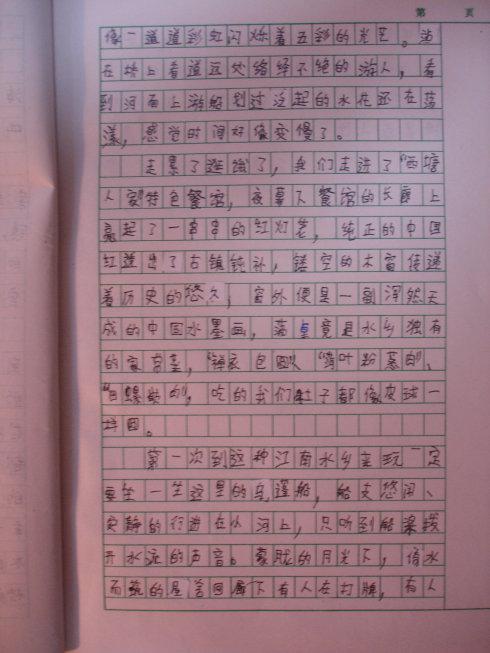 第 页
像一道道彩虹闪烁着五彩的光芒。站
在桥上看道远处络绎不绝的游人，看
到河面上游船划过泛起的水花还在荡
漾，感觉时间好像变慢了。
走累了逛饿了，我们走进了"西塘
人家"特色餐馆，夜幕下餐馆的长廊上
亮起了一串串的红灯笼，纯正的中国
红道出了古镇纯朴，镂空的木窗传递
着历史的悠久，窗外便是一副浑然天
成的中国水墨画，桌竟是水乡独有
的家常菜，"包圆""叶粉蒸肉"、
"田螺"，吃的我们肚子都像皮球一
样圆。
第一次到这种江南水乡来玩一定
要坐一坐这里的乌蓬船，船支悠闲、
安静的行进在小河上，只听到船桨拨
开水流的声音。朦胧的月光下，借水
而筑的屋舍回廊下有人在打牌，有人